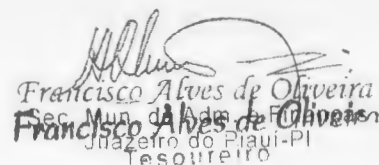 Francisco Alves de Oliveira
Sec. Mun. de Adm. e Finanças
Francisco Alves de Oliveira
Juazeiro do Piauí-PI
Tesoureiro